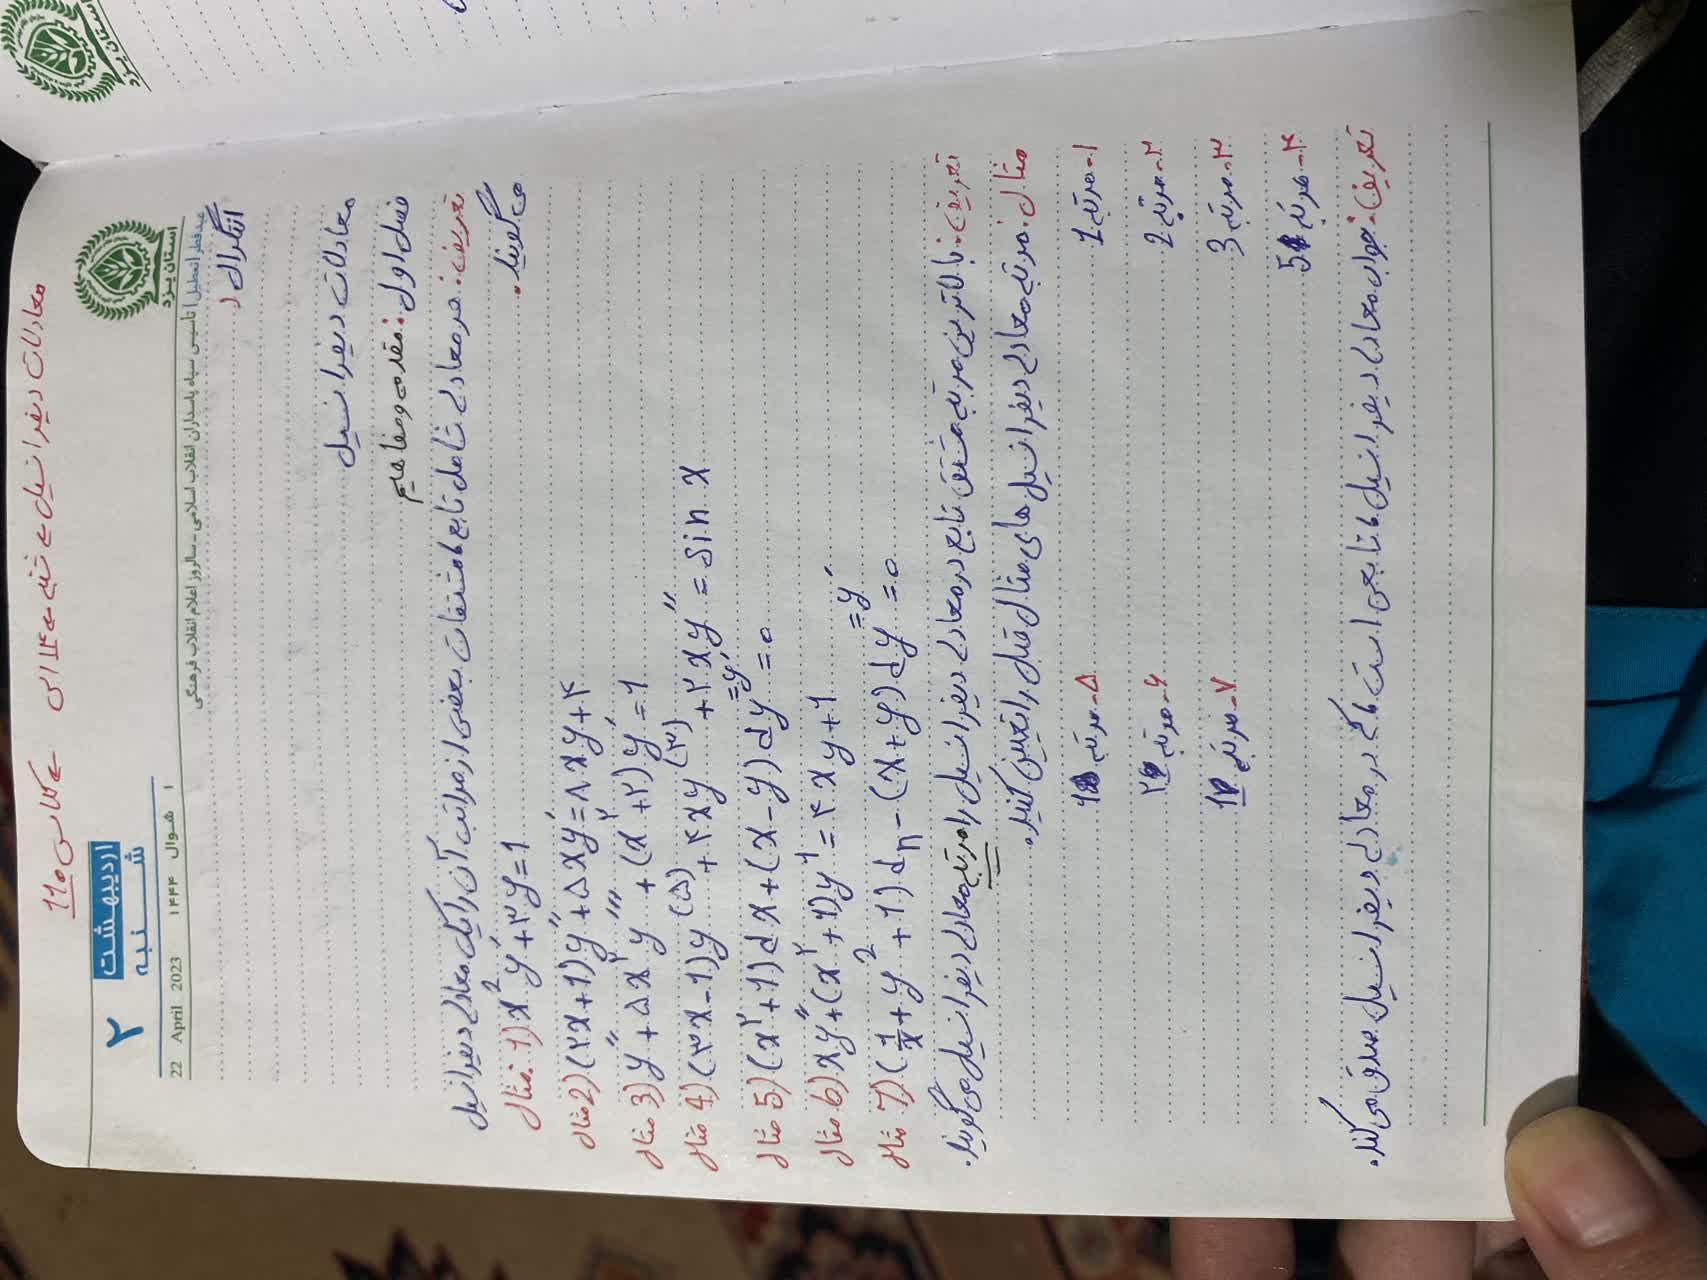 معادلات دیفرانسیل سه شنبه ۱۴ الی کلاس 110
۲ اردیبهشت
شنبه
22 April 2023 ۱۴۴۴ شوال ۱
استان یزد
عید فطر (تعطیل) تاسیس سپاه پاسداران انقلاب اسلامی - سالروز اعلام انقلاب فرهنگی
انتگرال (
معادلات دیفرانسیل
فصل اول: مقدمه و مفاهیم
تعریف: هر معادله شامل تابع با مشتقات بعضی از مراتب آن را یک معادله دیفرانسیل
می گویند.
مثال: 1) x² y′ + ۳y = 1
مثال 2) (۲x+1) y″ + ۵xy′ = ۸xy + ۴
مثال 3) y″ + ۵x² y‴ + (x² + ۲) y′ = 1
مثال 4) (۳x-1) y⁽⁵⁾ + ۴xy⁽³⁾ + ۲xy″ = sin x
مثال 5) (x² + 1) dx + (x - y) dy = 0 = y′
مثال 6) xy″ + (x² + 1) y′ = ۴xy + 1
مثال 7) (1/x + y² + 1) dn - (x + y) dy = 0 = y′
تعریف: بالاترین مرتبه مشتق تابع در معادله دیفرانسیل را مرتبه معادله دیفرانسیل می گویند.
مثال: مرتبه معادله دیفرانسیل های مثال قبل را تعیین کنید.
۱- مرتبه 1 ۵- مرتبه 1
۲- مرتبه 2 ۶- مرتبه ۲
۳- مرتبه 3 ۷- مرتبه 1
۴- مرتبه 5
تعریف: جواب معادله دیفرانسیل ما تابعی است که در معادله دیفرانسیل صدق می کند.